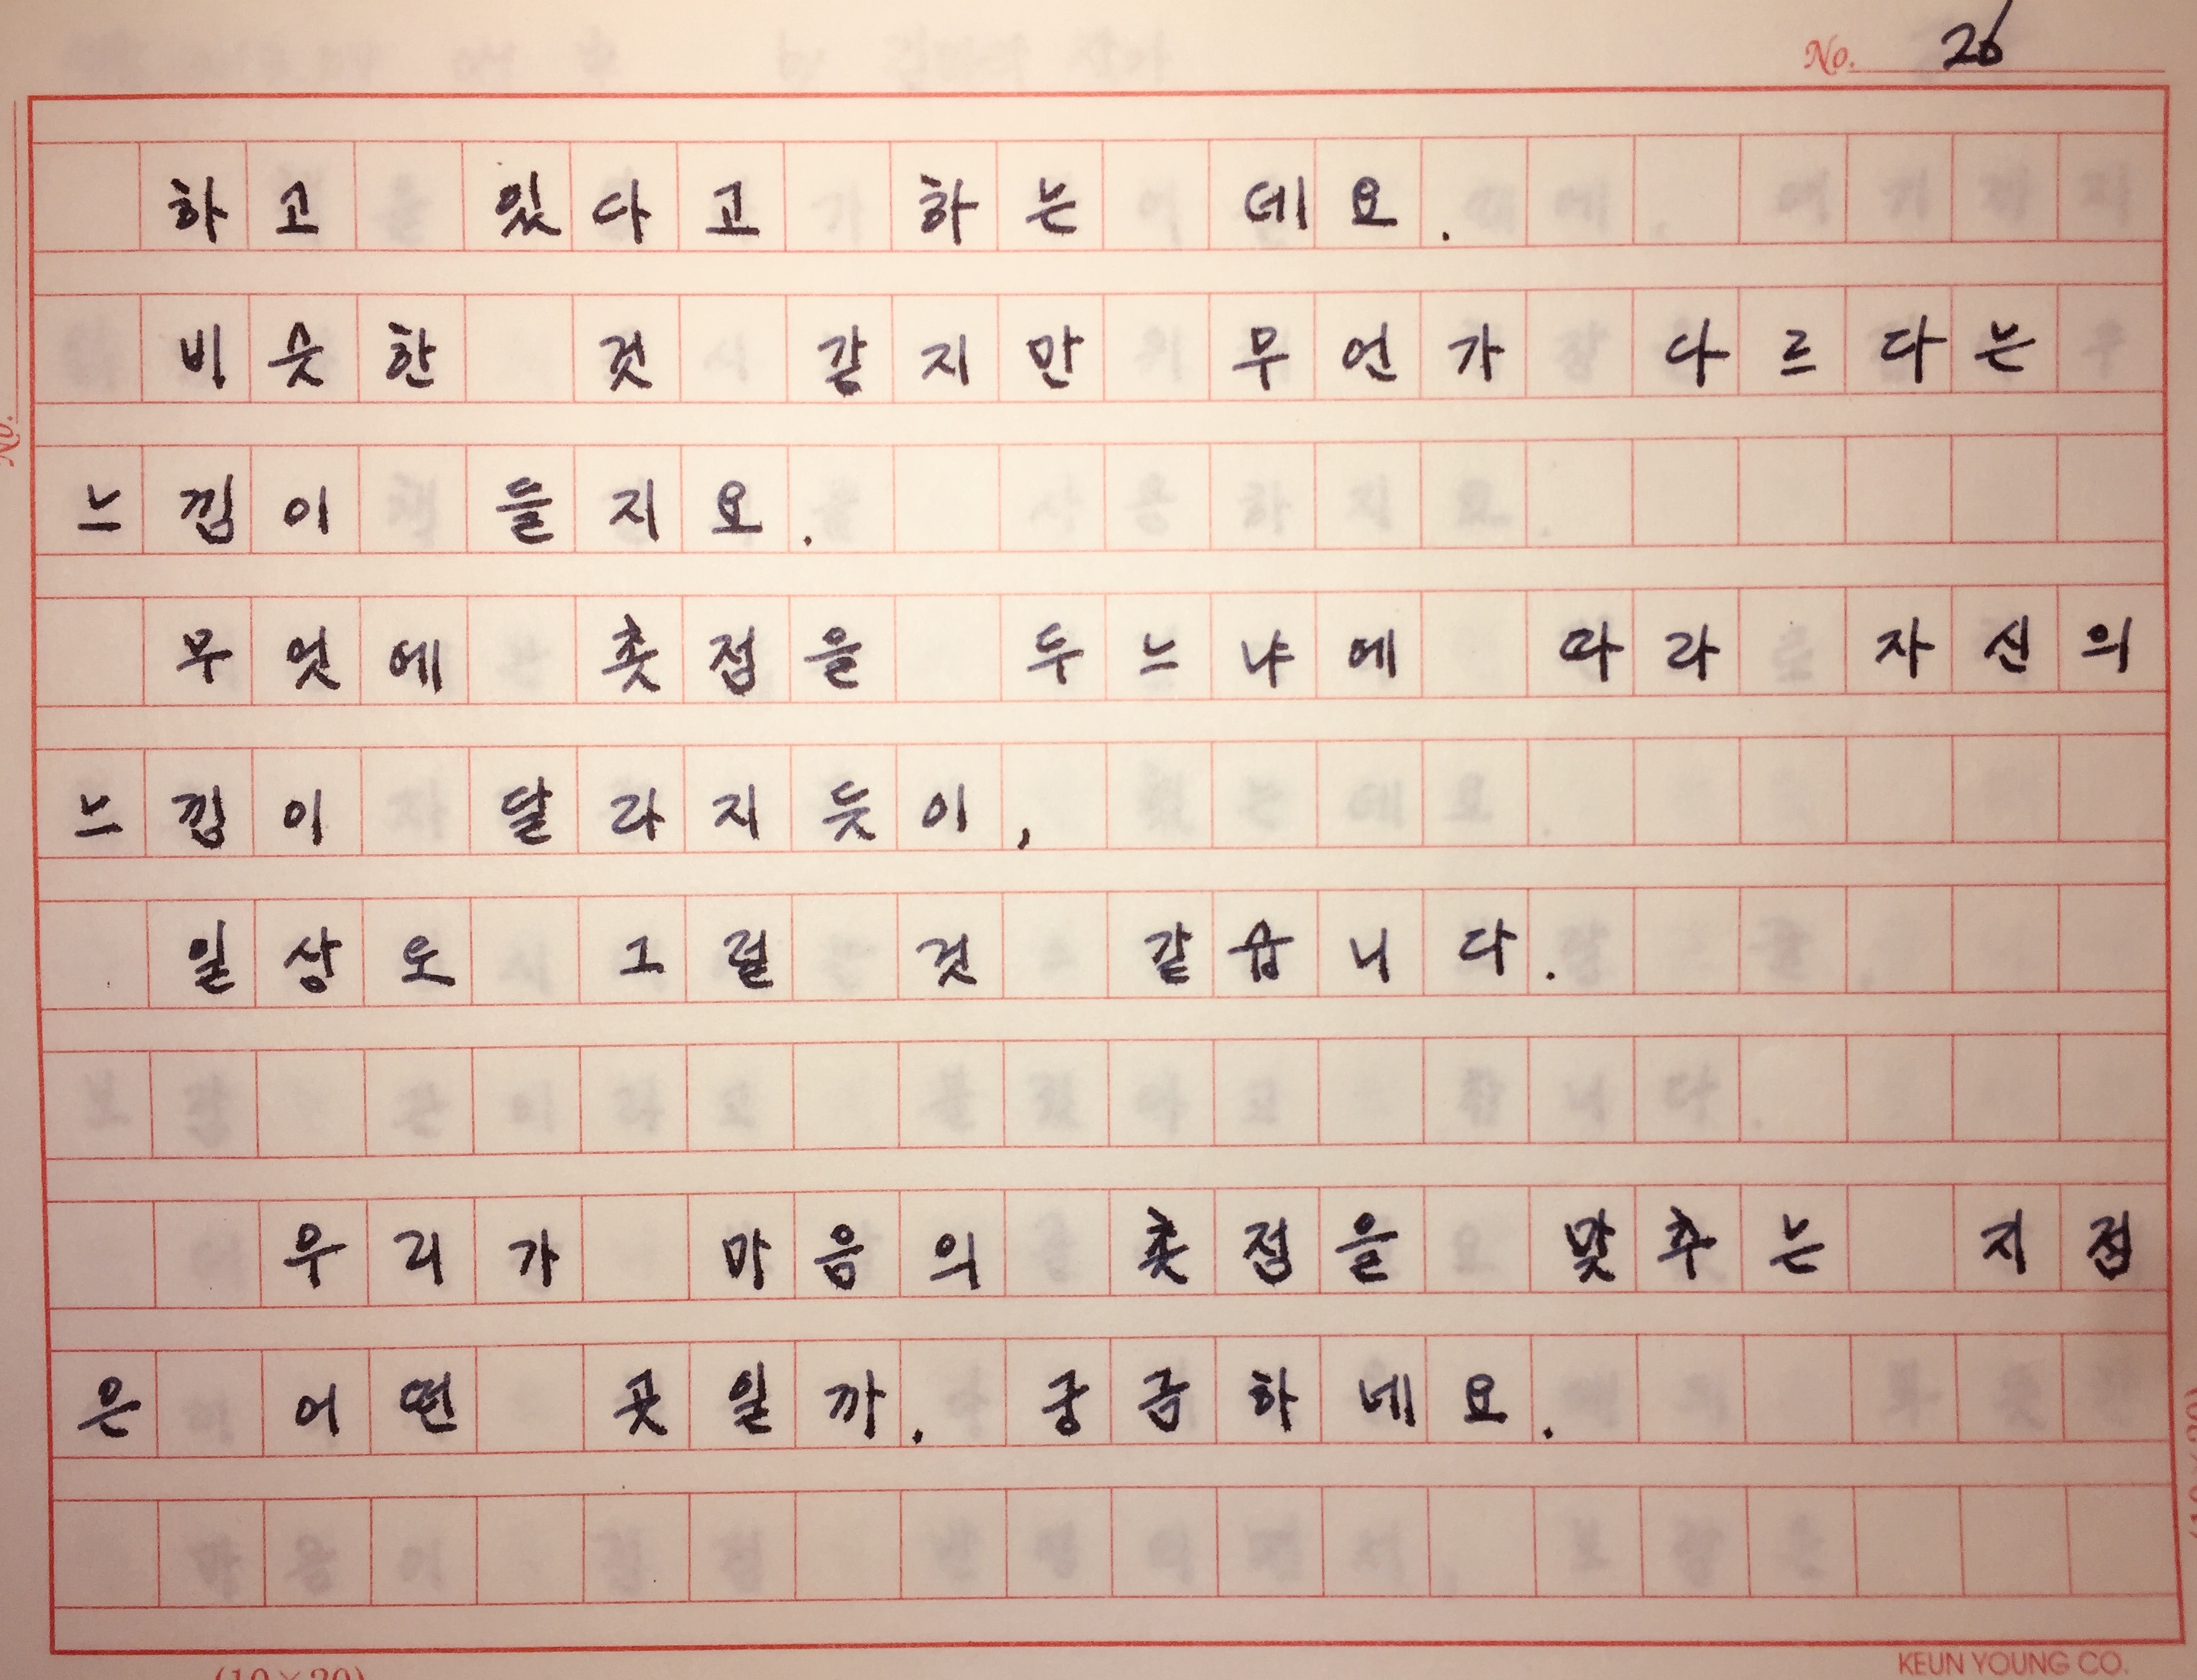 No. 26
하고 있다고 하는 데요.
비슷한 것 같지만 무언가 다르다는
느낌이 들지요.
무엇에 촛점을 두느냐에 따라 자신의
느낌이 달라지듯이,
일상도 그럴 것 같습니다.
우리가 마음의 촛점을 맞추는 지점
은 어떤 곳일까. 궁금하네요.
KEUN YOUNG CO.
(10×20)
No.